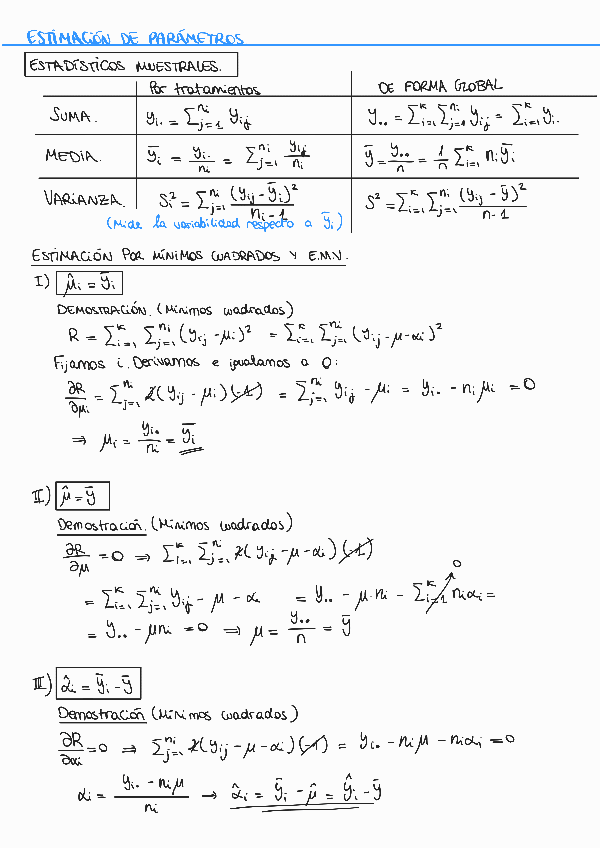 ESTIMACIÓN DE PARÁMETROS
ESTADÍSTICOS MUESTRALES.
Por tratamientos DE FORMA GLOBAL
SUMA. yi. = Σ_{j=1}^{ni} yij y.. = Σ_{i=1}^{k} Σ_{j=1}^{ni} yij = Σ_{i=1}^{k} yi.
MEDIA. ȳi = yi./ni = Σ_{j=1}^{ni} yij/ni ȳ = y../n = 1/n Σ_{i=1}^{k} ni ȳi
VARIANZA. Si² = Σ_{j=1}^{ni} (yij - ȳi)²/(ni - 1) S² = Σ_{i=1}^{k} Σ_{j=1}^{ni} (yij - ȳ)²/(n - 1)
(Mide la variabilidad respecto a ȳi)
ESTIMACIÓN POR MÍNIMOS CUADRADOS Y E.M.V.
I) μ̂i = ȳi
DEMOSTRACIÓN. (Mínimos cuadrados)
R = Σ_{i=1}^{k} Σ_{j=1}^{ni} (yij - μi)² = Σ_{i=1}^{k} Σ_{j=1}^{ni} (yij - μ - αi)²
Fijamos i. Derivamos e igualamos a 0:
∂R/∂μi = Σ_{j=1}^{ni} 2(yij - μi)(-1) = Σ_{j=1}^{ni} yij - μi = yi. - ni μi = 0
⇒ μi = yi./ni = ȳi
II) μ̂ = ȳ
Demostración. (Mínimos cuadrados)
∂R/∂μ = 0 ⇒ Σ_{i=1}^{k} Σ_{j=1}^{ni} 2(yij - μ - αi)(-1)
0
= Σ_{i=1}^{k} Σ_{j=1}^{ni} yij - μ - α = y.. - μ·ni - Σ_{i=1}^{k} ni αi =
= y.. - μni = 0 ⇒ μ = y../n = ȳ
III) α̂i = ȳi - ȳ
Demostración (Mínimos cuadrados)
∂R/∂αi = 0 ⇒ Σ_{j=1}^{ni} 2(yij - μ - αi)(-1) = yi. - niμ - niαi = 0
αi = (yi. - niμ)/ni → α̂i = ȳi - μ̂ = ŷi - ȳ